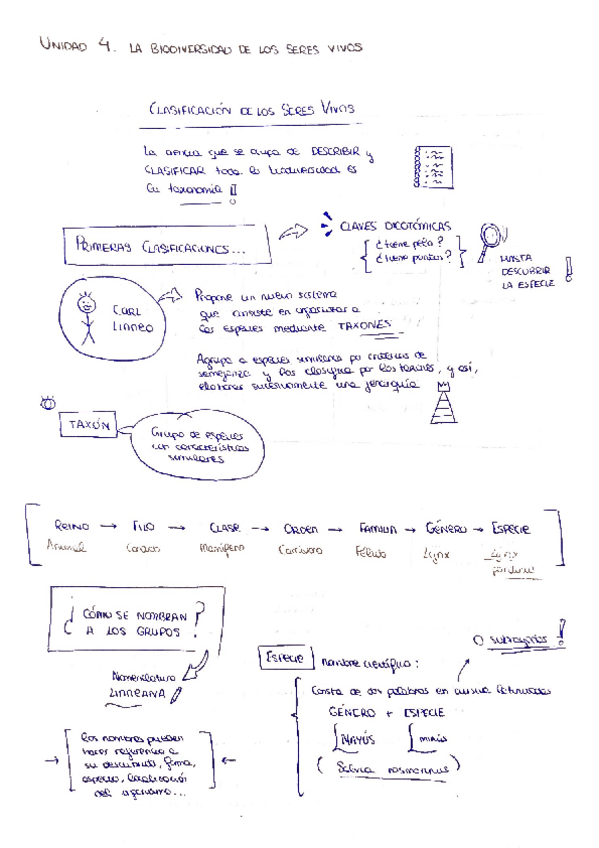 UNIDAD 4. LA BIODIVERSIDAD DE LOS SERES VIVOS
CLASIFICACIÓN DE LOS SERES VIVOS
La ciencia que se ocupa de DESCRIBIR y
CLASIFICAR toda la biodiversidad es
la taxonomía !
PRIMERAS CLASIFICACIONES...
CLAVES DICOTÓMICAS
¿tiene pelo?
¿tiene puntas?
HASTA
DESCUBRIR
LA ESPECIE !
CARL
LINNEO
Propone un nuevo sistema
que consiste en organizar a
las especies mediante TAXONES
Agrupa a especies similares por criterios de
semejanza y los clasifica por los taxones, y así,
elabora sucesivamente una jerarquía
TAXÓN
Grupo de especies
con características
similares
REINO → FILO → CLASE → ORDEN → FAMILIA → GÉNERO → ESPECIE
Animal Cordado Mamífero Carnívoro Félido Lynx Lynx
pardinus
¿CÓMO SE NOMBRAN
A LOS GRUPOS?
Nomenclatura
LINNEANA
Los nombres pueden
hacer referencia a
su descubridor, forma,
aspecto, localización
del organismo...
O subrayados !
ESPECIE nombre científico:
Consta de dos palabras en cursiva latinizadas
GÉNERO + ESPECIE
MAYÚS minús
(Salvia rosmarinus)